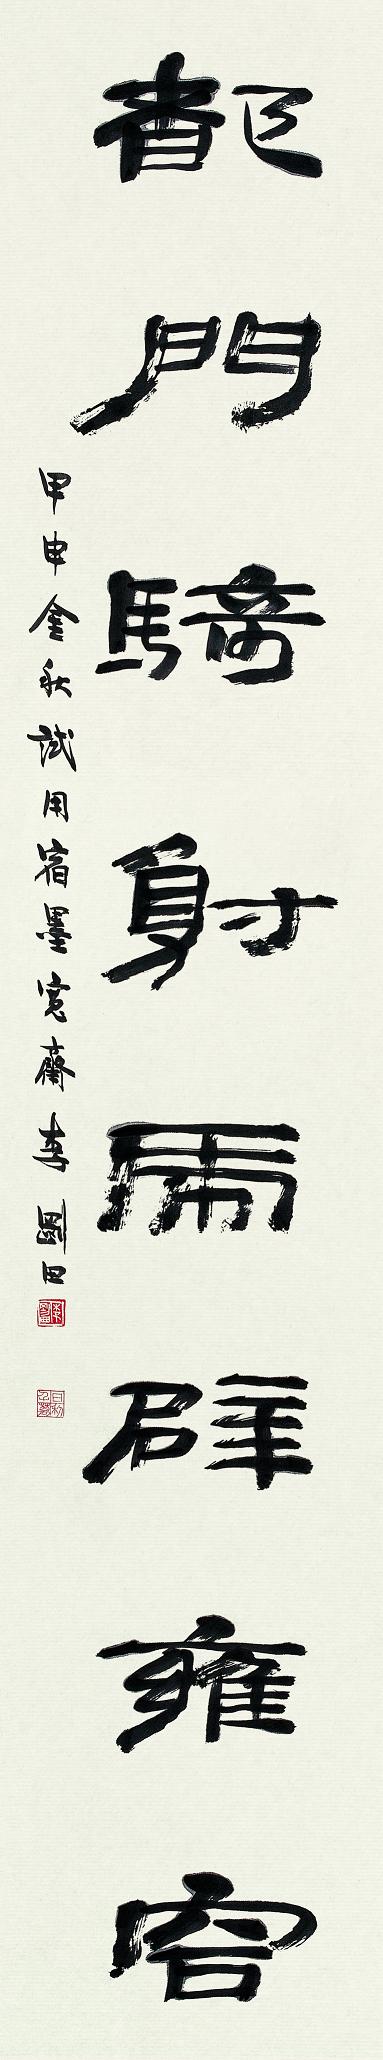 都門騎射辟雍容
甲申金秋試用宿墨寬齋李剛田